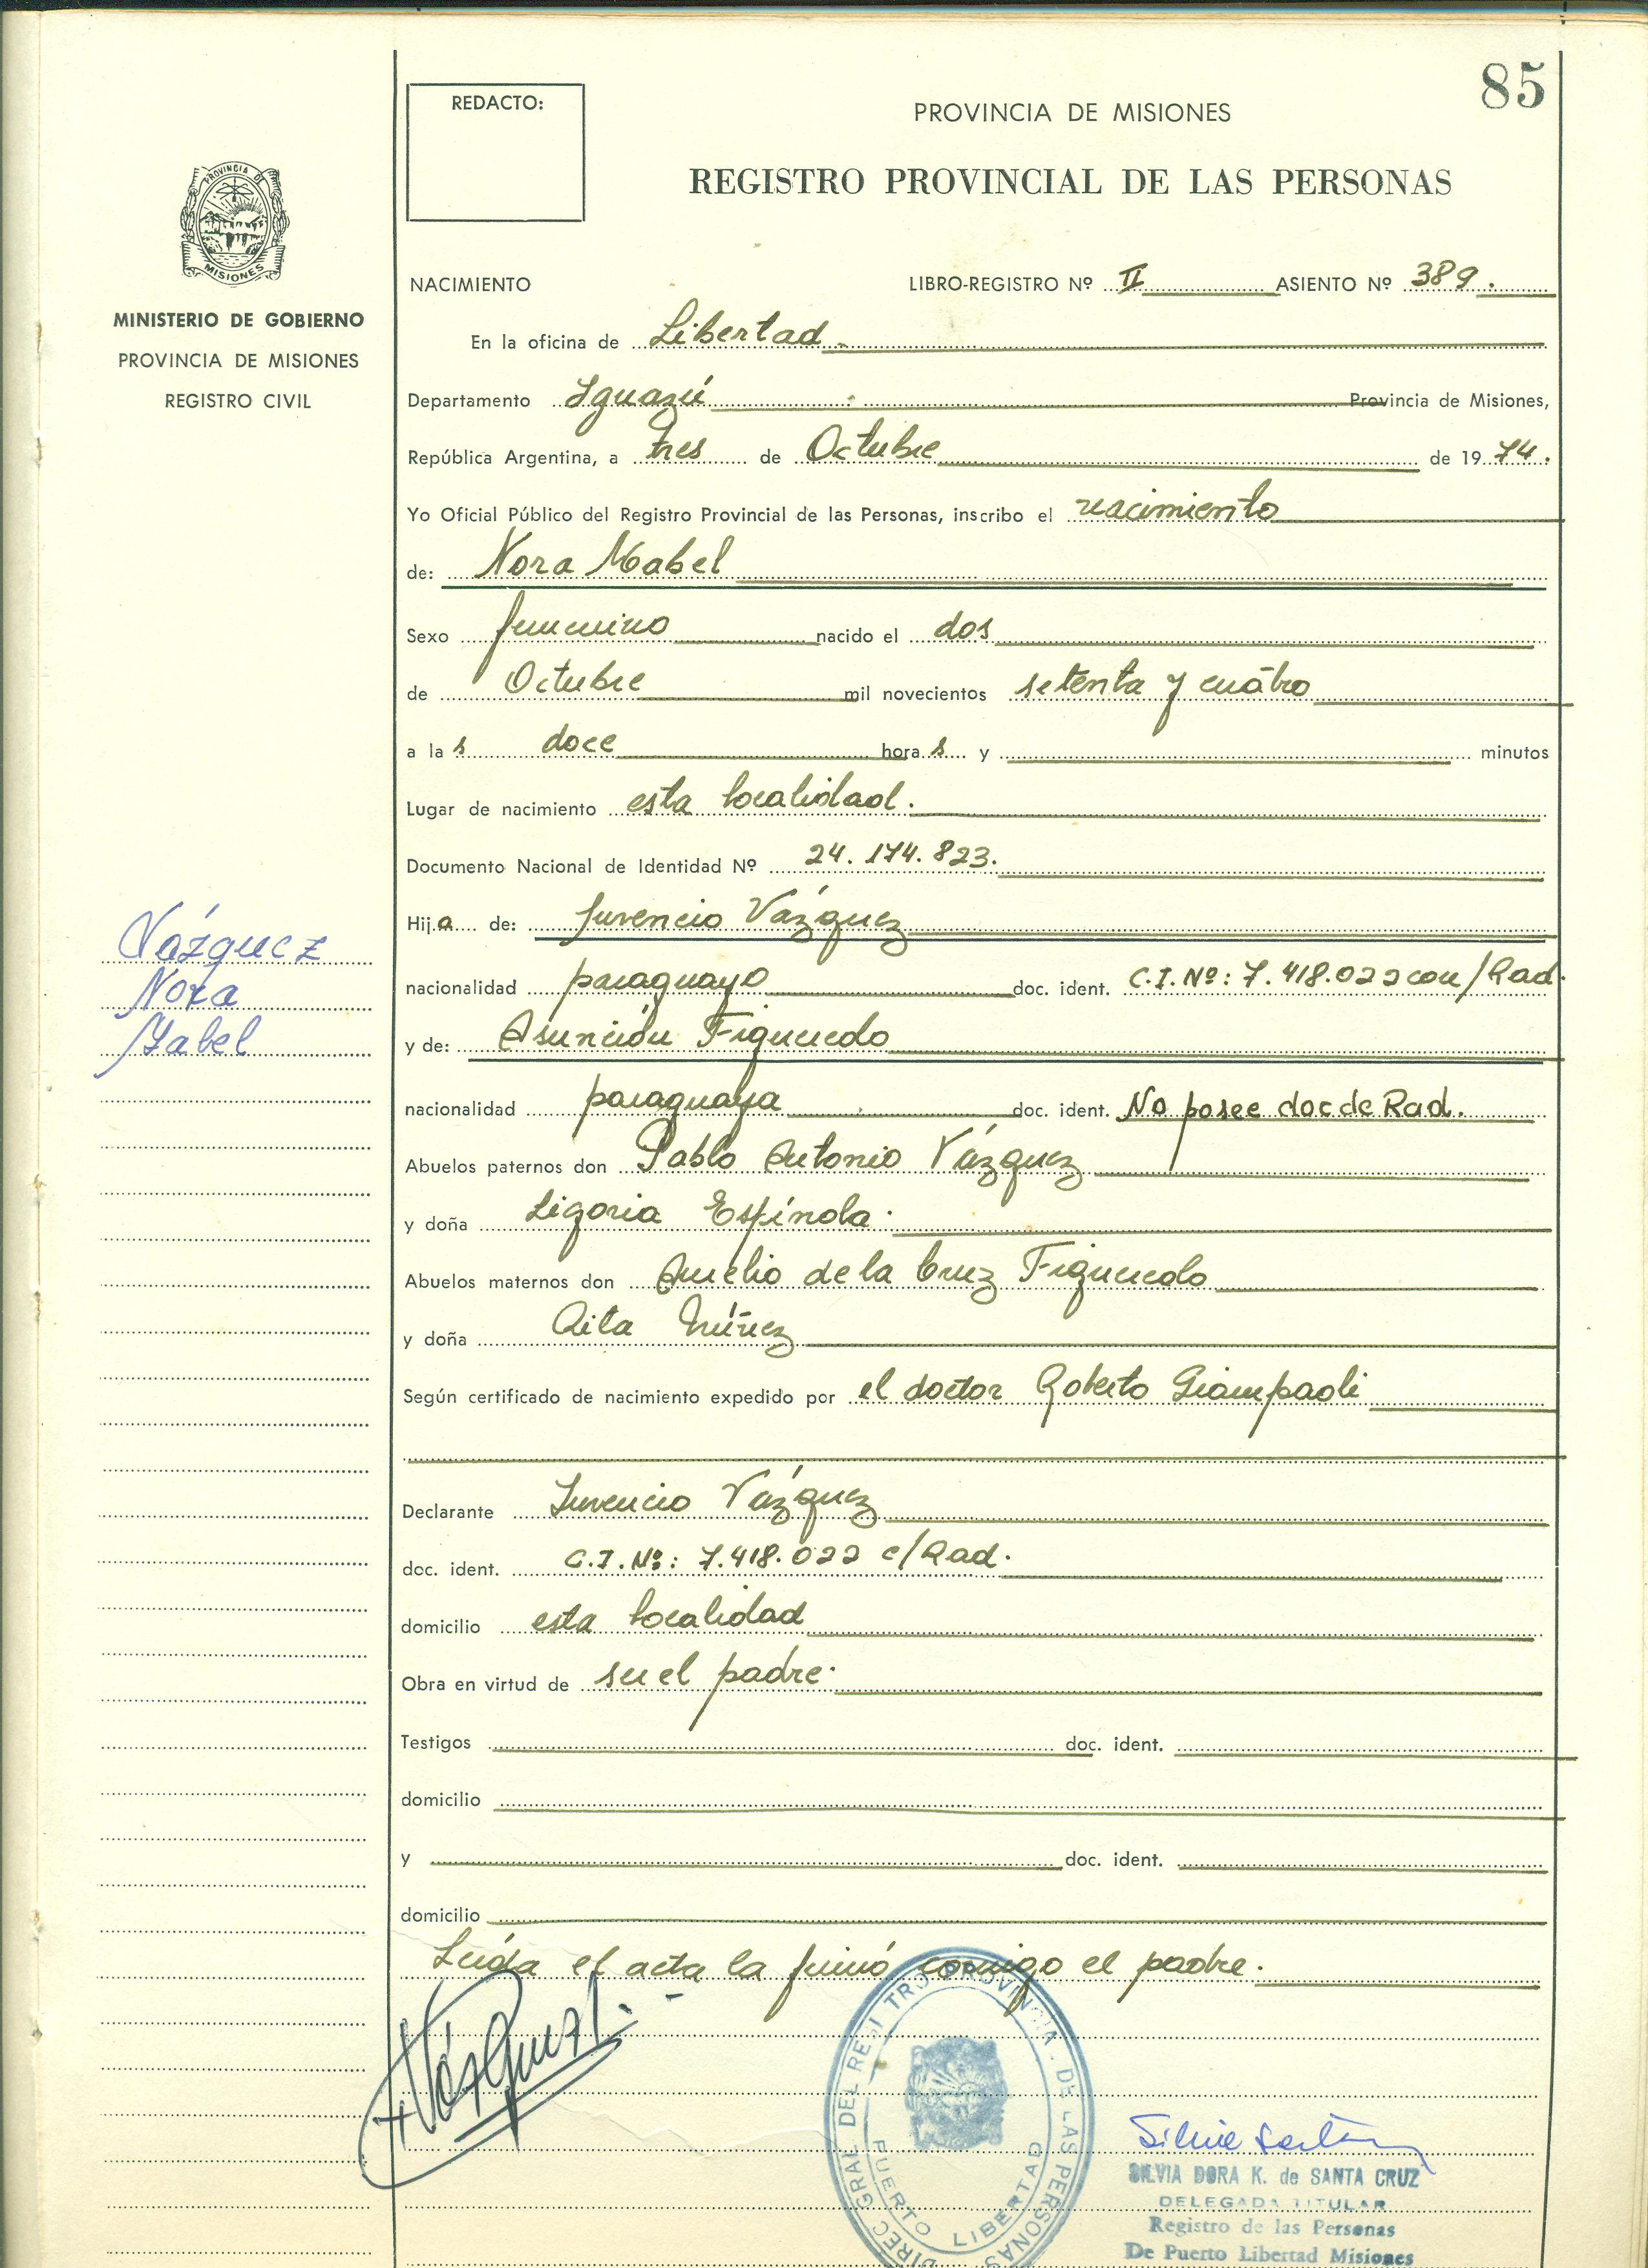 85
REDACTO:
PROVINCIA DE MISIONES
REGISTRO PROVINCIAL DE LAS PERSONAS
PROVINCIA DE
MISIONES
MINISTERIO DE GOBIERNO
PROVINCIA DE MISIONES
REGISTRO CIVIL
NACIMIENTO LIBRO-REGISTRO Nº II ASIENTO Nº 389.
En la oficina de Libertad.
Departamento Iguazú Provincia de Misiones,
República Argentina, a tres de Octubre de 1974.
Yo Oficial Público del Registro Provincial de las Personas, inscribo el nacimiento
de: Nora Mabel
Sexo femenino nacido el dos
de Octubre mil novecientos setenta y cuátro
a las doce horas y minutos
Lugar de nacimiento esta localidad.
Documento Nacional de Identidad Nº 24.174.823.
Hija de: Juvencio Vázquez
nacionalidad paraguayo doc. ident. C.I.Nº: 7.418.022 con/Rad.
y de: Asunción Figueredo
nacionalidad paraguaya doc. ident. No posee doc de Rad.
Abuelos paternos don Pablo Antonio Vázquez
y doña Ligoria Espínola.
Abuelos maternos don Aurelio de la Cruz Figueredo
y doña Rita Núñez
Según certificado de nacimiento expedido por el doctor Roberto Giampaoli
Declarante Juvencio Vázquez
doc. ident. C.I.Nº: 7.418.022 c/Rad.
domicilio esta localidad
Obra en virtud de ser el padre.
Testigos doc. ident.
domicilio
y doc. ident.
domicilio
Leída el acta la firmó conmigo el padre.
Vázquez
Nora
Mabel
Vázquez
DIREC GRAL DEL REGISTRO PROVINCIA. DE LAS PERSONAS
PUERTO LIBERTAD
SILVIA DORA K. de SANTA CRUZ
DELEGADA TITULAR
Registro de las Personas
De Puerto Libertad Misiones